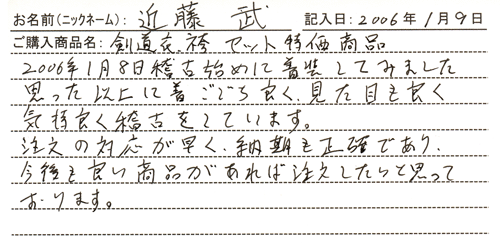 お名前(ニックネーム): 近藤 武 記入日: 2006年1月9日
ご購入商品名: 剣道衣袴セット特価商品
2006年1月8日稽古始めに着装してみました
思った以上に着ごごち良く、見た目も良く
気持良く稽古をしています。
注文の対応が早く、納期も正確であり、
今後も良い商品があれば注文したいと思って
おります。